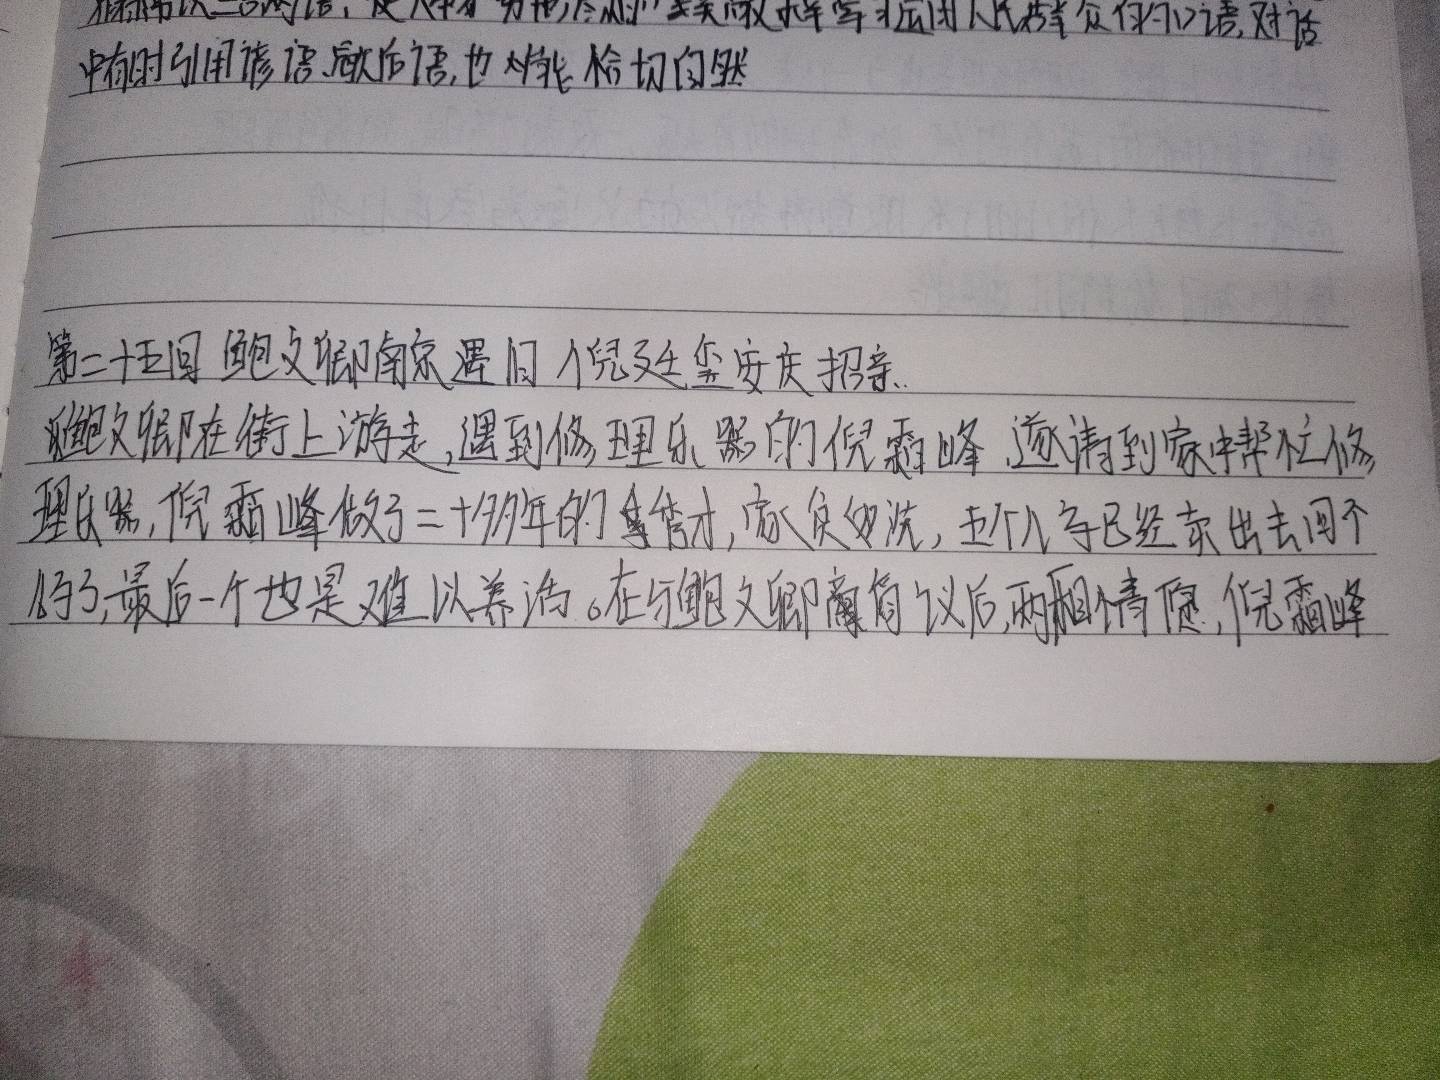 中有时引用谚语、歇后语,也大都能恰切自然
第二十五回 鲍文卿南京遇旧 倪廷玺安庆招亲.
鲍文卿在街上游走,遇到修理乐器的倪霜峰.邀请到家中帮忙修
理乐器,倪霜峰做了二十多年的秀才,家贫如洗,五个儿子已经卖出去四个
儿子了,最后一个也是难以养活。在与鲍文卿商议后,两相情愿,倪霜峰